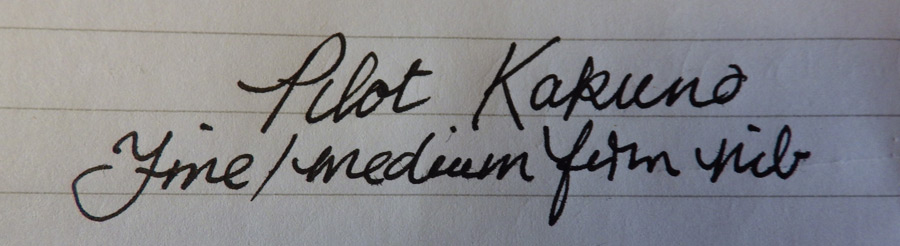 Pilot Kakuno
Fine/medium firm nib